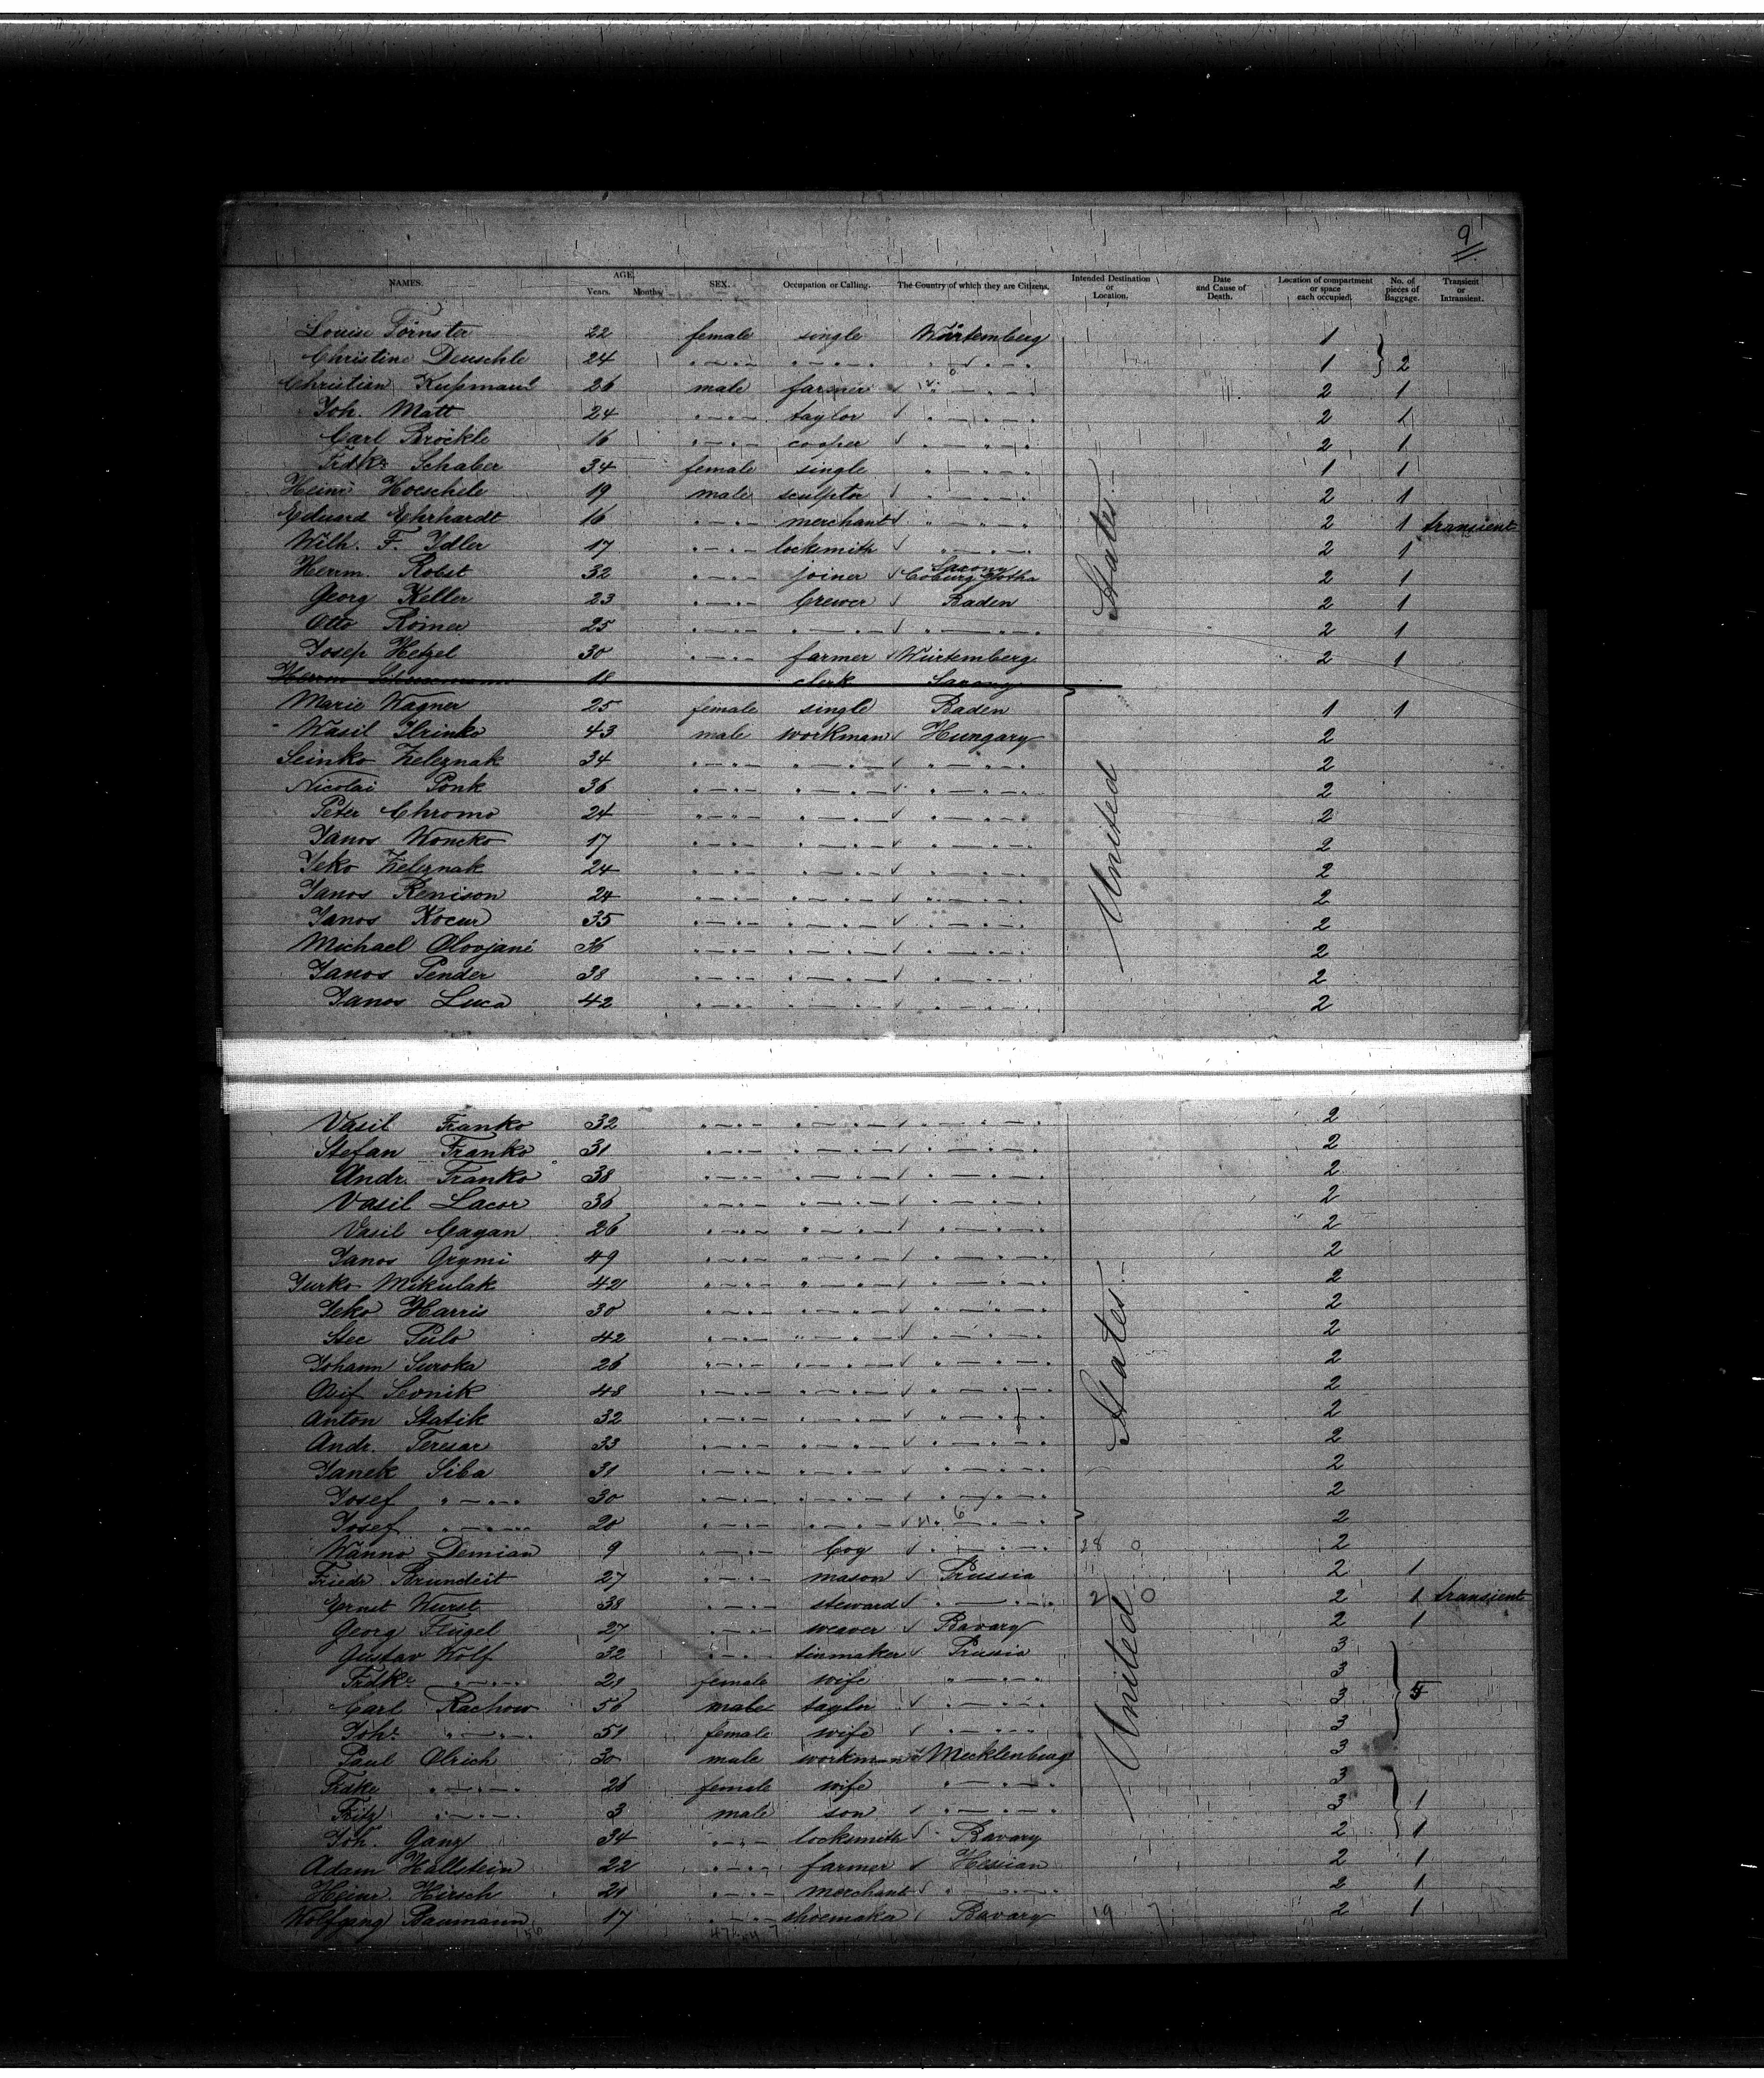 9
NAMES. AGE. Years. Months. SEX. Occupation or Calling. The Country of which they are Citizens. Intended Destination or Location. Date and Cause of Death. Location of compartment or space each occupied. No. of pieces of Baggage. Transient or Intransient.
Louise Förnster 22 female single Würtemberg 1
Christine Deuschle 24 " " " 1 2
Christian Kußmaul 26 male farmer " 2 1
Joh. Matt 24 " taylor " 2 1
Carl Bröckle 16 " cooper " 2 1
Frdke Schaber 34 female single " 1 1
Heinr Hoeschele 19 male sculptor " 2 1
Eduard Ehrhardt 16 " merchant " 2 1 transient
Wilh. F. Idler 17 " locksmith " 2 1
Herrm. Robst 32 " joiner Saxony Coburg Gotha 2 1
Georg Keller 23 " brewer Baden 2 1
Otto Römer 25 " " " 2 1
Josep Hetzel 30 " farmer Würtemberg 2 1
Herrm 18 clerk Saxony
Marie Wagner 25 female single Baden 1 1
Wasil Hrinko 43 male workman Hungary 2
Seinko Zeleznak 34 " " " 2
Nicolai Ponk 36 " " " 2
Peter Chromo 24 " " " 2
Janos Woncko 17 " " " 2
Jeko Zeleznak 24 " " " 2
Janos Renison 24 " " " 2
Janos Kocur 35 " " " 2
Michael Oloojani 36 " " " 2
Janos Pender 38 " " " 2
Janos Luca 42 " " " 2
United States
Vasil Franko 32 " " " 2
Stefan Franko 31 " " " 2
Andr. Franko 38 " " " 2
Vasil Lacor 36 " " " 2
Vasil Cagan 26 " " " 2
Janos Grymi 49 " " " 2
Jurko Mikulak 42 " " " 2
Jeko Harris 30 " " " 2
Stec Pulo 42 " " " 2
Johann Suroka 26 " " " 2
Sevnik 48 " " " 2
Anton Statik 32 " " " 2
Andr. Teresar 33 " " " 2
Janek Siba 31 " " " 2
Josef " 30 " " " 2
Josef " 20 " " " 2
Wänno Demian 9 " boy " 28 0 2
Friedr Brundeit 27 " mason Prussia 2 1
Ernst Wurst 38 " steward " 2 0 2 1 transient
Georg Flügel 27 " weaver Bavary 2 1
Gustav Wolf 32 " tinmaker Prussia 3
Frdke " 28 female wife " 3
Carl Rachow 56 male taylor " 3 5
Johe " 51 female wife " 3
Paul Olrich 30 male workman Mecklenburg 3
Frdke " 26 female wife " 3
Fritz " 3 male son " 3 1
Joh. Ganz 34 " locksmith Bavary 2 1
Adam Hallstein 22 " farmer Hessian 2 1
Heinr. Hirsch 21 " merchant " 2 1
Wolfgang Baumann 17 " shoemaker Bavary 19 2 1
United States
56 47